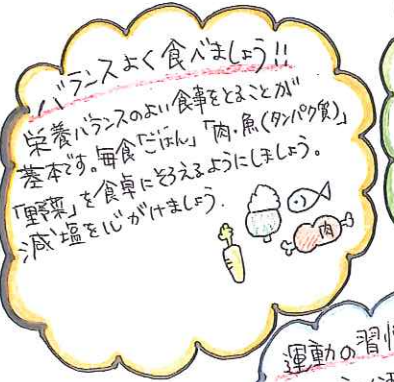 バランスよく食べましょう!!
栄養バランスのよい食事をとることが
基本です。毎食「ごはん」「肉・魚(タンパク質)」
「野菜」を食卓にそろえるようにしましょう。
減塩を心がけましょう。
肉
運動の習慣